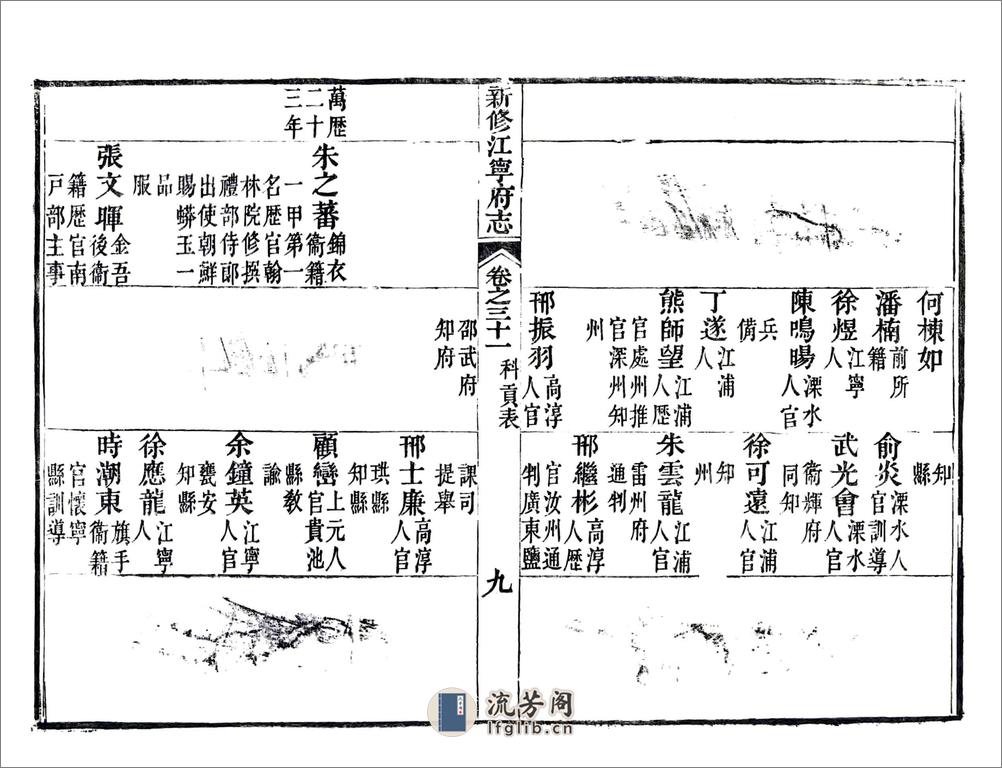 何棟如
潘楠前所
籍
徐煜江寧
人
陳鳴暘溧水
人官
兵
備
丁遂江浦
人
熊師望江浦
人歷
官處州推
官深州知
州
邢振羽高淳
人官
知
縣
俞炎溧水人
官訓導
武光會溧水
人官
衞輝府
同知
徐可遠江浦
人官
知
州
朱雲龍江浦
人官
雷州府
通判
邢繼彬高淳
人歷
官汝州通
判廣東鹽
新修江寧府志
卷之三十一
科貢表
九
萬歷
二十
三年
朱之蕃錦衣
衞籍
一甲第一
名歷官翰
林院修撰
禮部侍郎
出使朝鮮
賜蟒玉一
品
服
張文暉金吾
後衞
籍歷官南
戸部主事
邵武府
知府
課司
提舉
邢士廉高淳
人官
珙縣
知縣
顧巒上元人
官貴池
縣教
諭
余鐘英江寧
人官
甕安
知縣
徐應龍江寧
人
時潮東旗手
衞籍
官懷寧
縣訓導
流芳阁
lfglib.cn